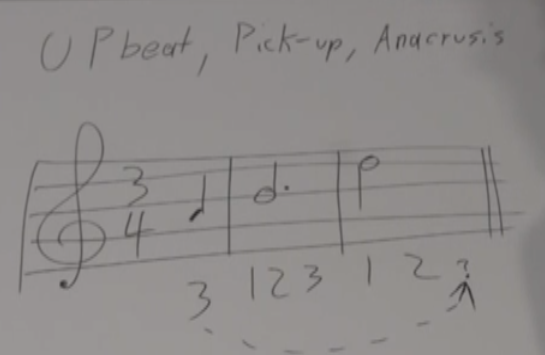 UPbeat, Pick-up, Anacrusis
3
4
3 1 2 3 1 2 ?